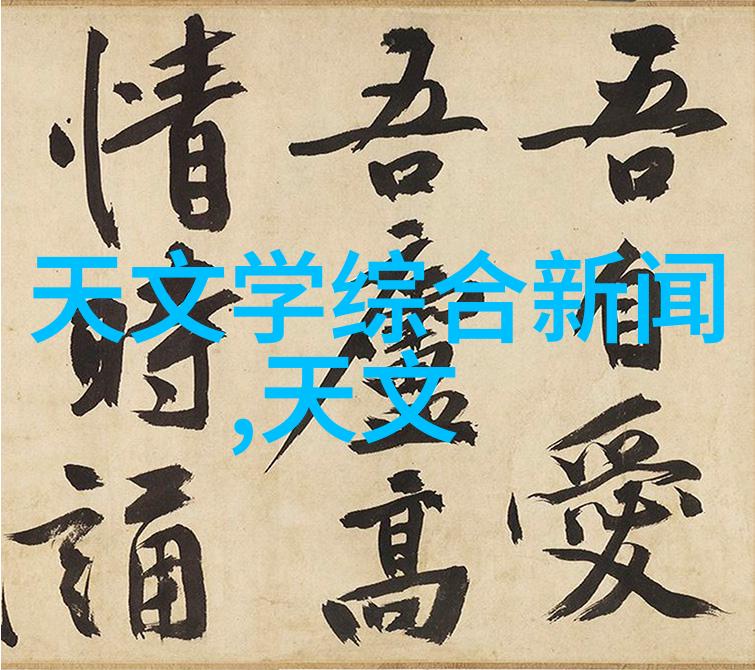 吾自愛
吾廬高
情時誦
天文学综合新闻
,天文